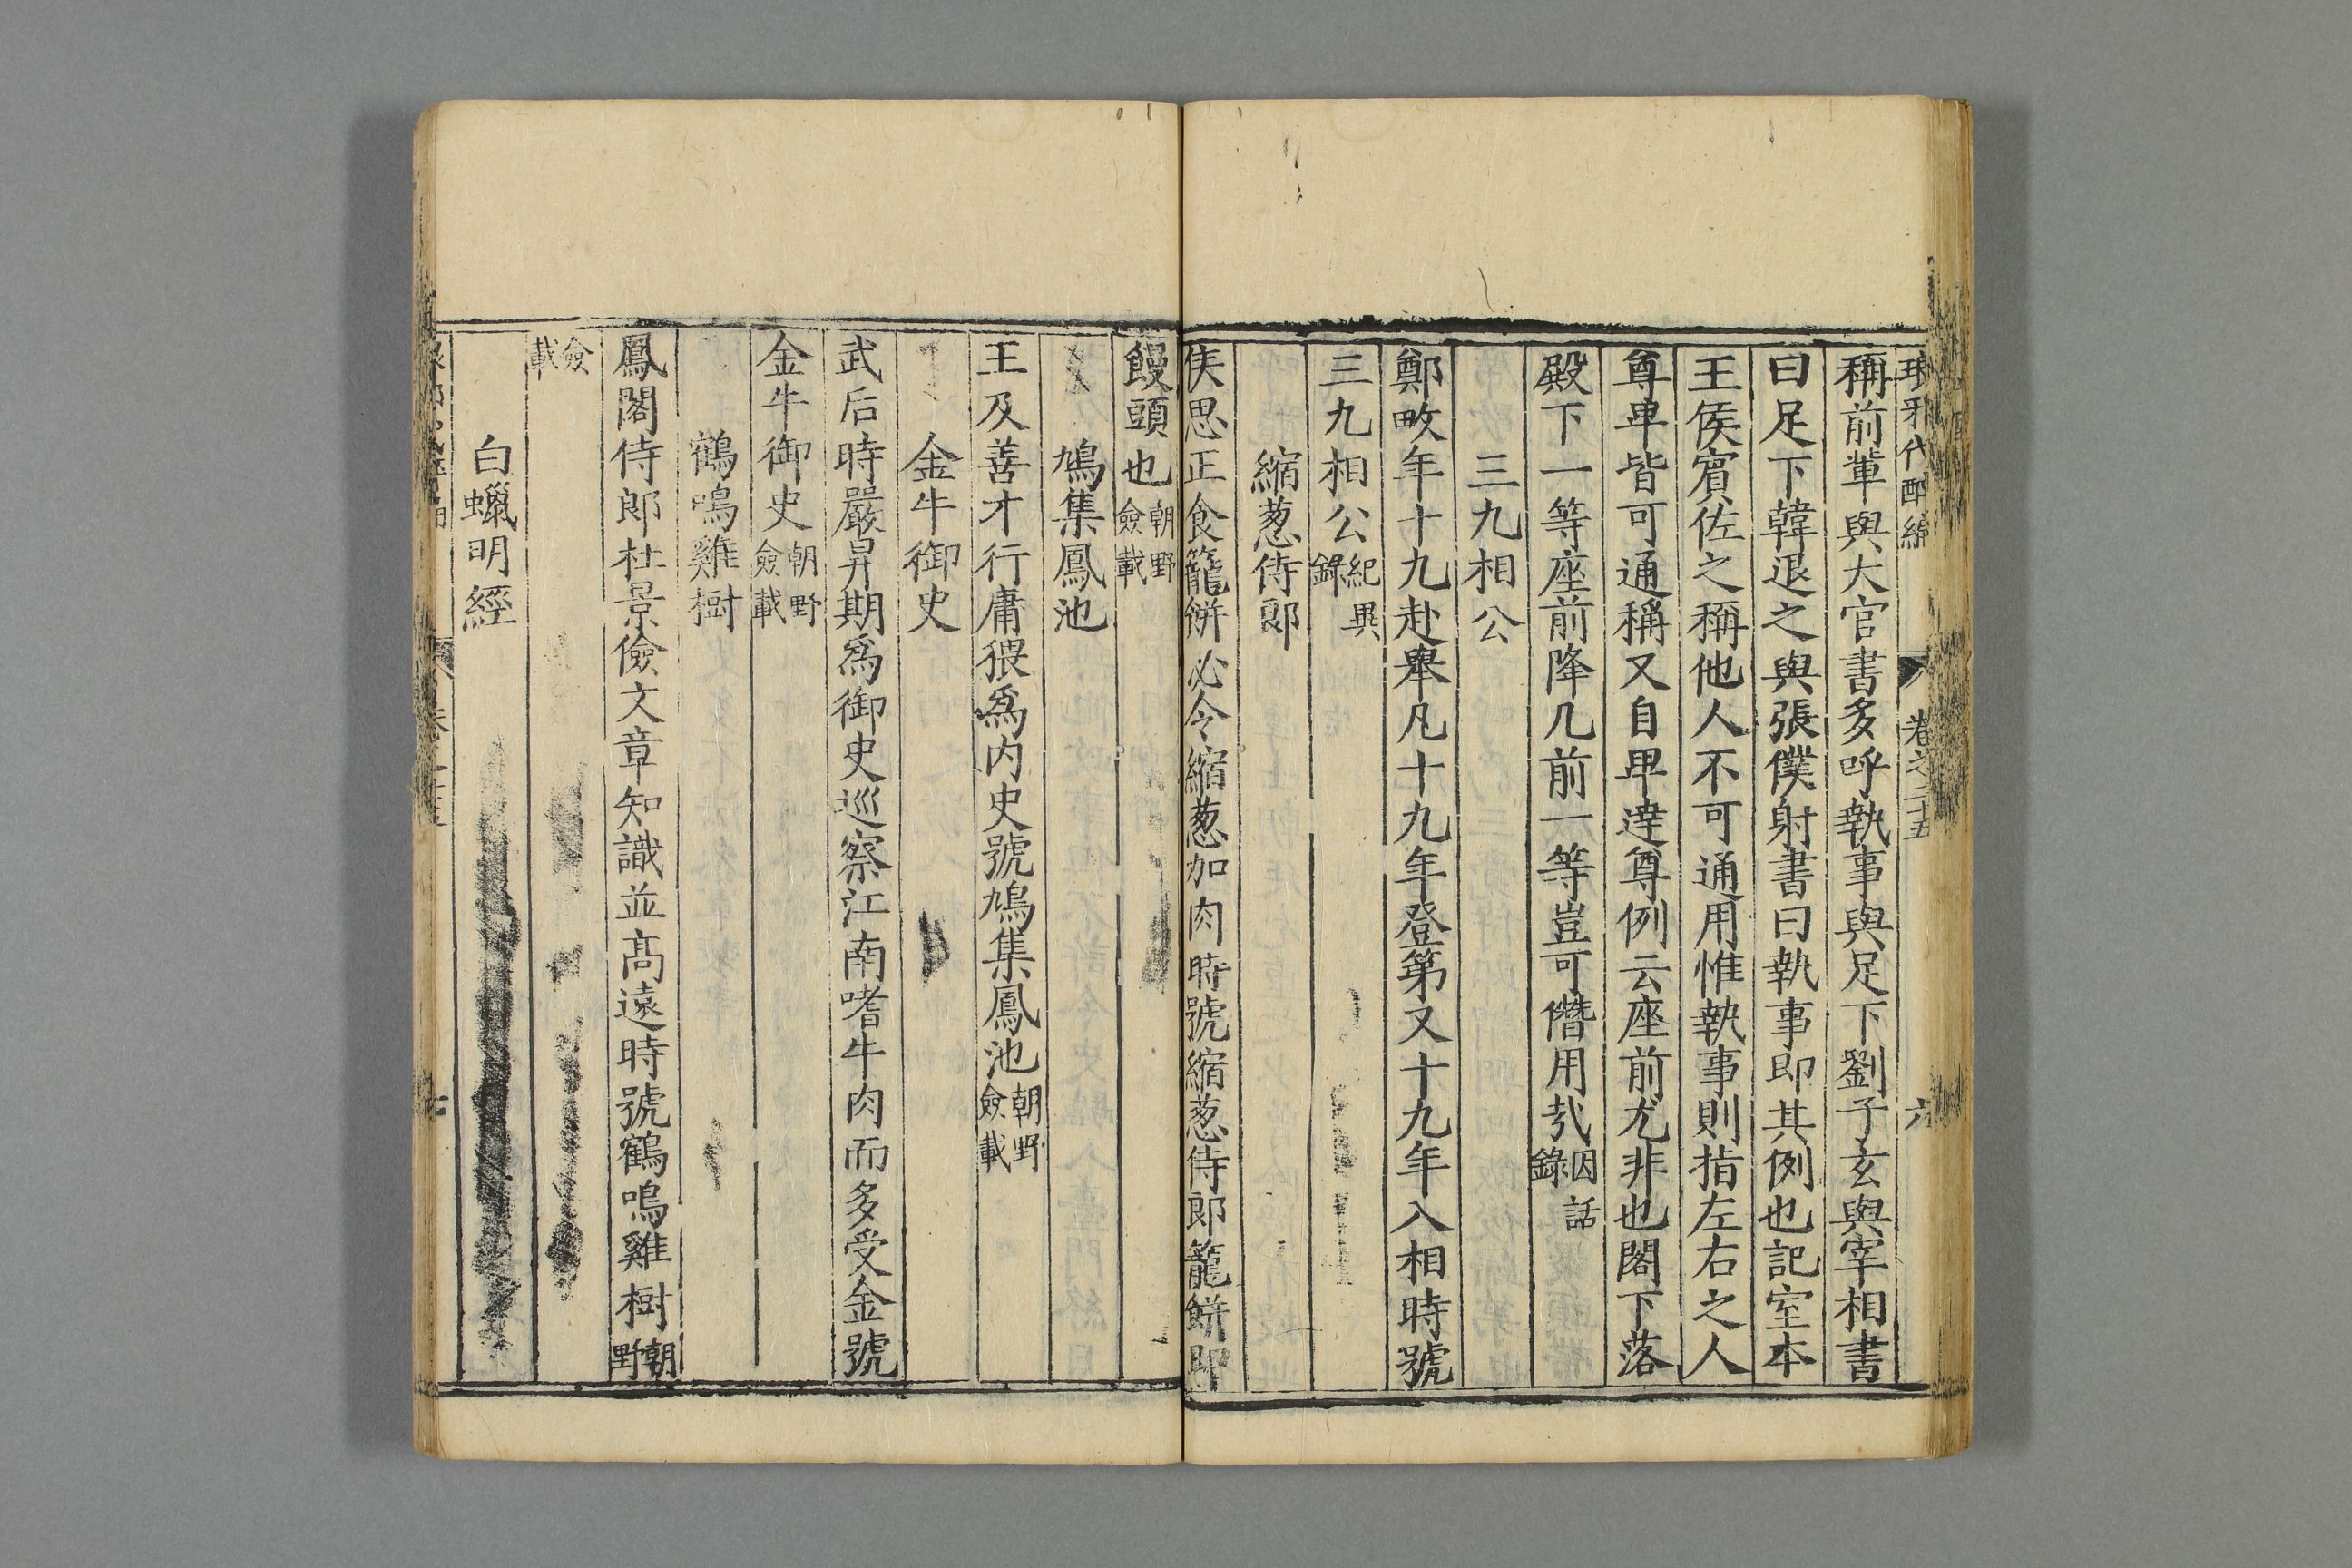 琅邪代醉編 卷之二十五 六
稱前輩與大官書多呼執事與足下劉子玄與宰相書
曰足下韓退之與張僕射書曰執事即其例也記室本
王侯賓佐之稱他人不可通用惟執事則指左右之人
尊卑皆可通稱又自卑達尊例云座前尤非也閣下落
殿下一等座前降几前一等豈可僭用㢤因話錄
三九相公
鄭畋年十九赴舉凡十九年登第又十九年入相時號
三九相公紀異錄
縮葱侍郎
侯思正食籠餅必令縮葱加肉時號縮葱侍郎籠餅即
饅頭也朝野僉載
鳩集鳳池
王及善才行庸猥爲內史號鳩集鳳池朝野僉載
金牛御史
武后時嚴昇期爲御史巡察江南嗜牛肉而多受金號
金牛御史朝野僉載
鶴鳴雞樹
鳳閣侍郎杜景儉文章知識並髙遠時號鶴鳴雞樹朝野
僉載
白蠟明經